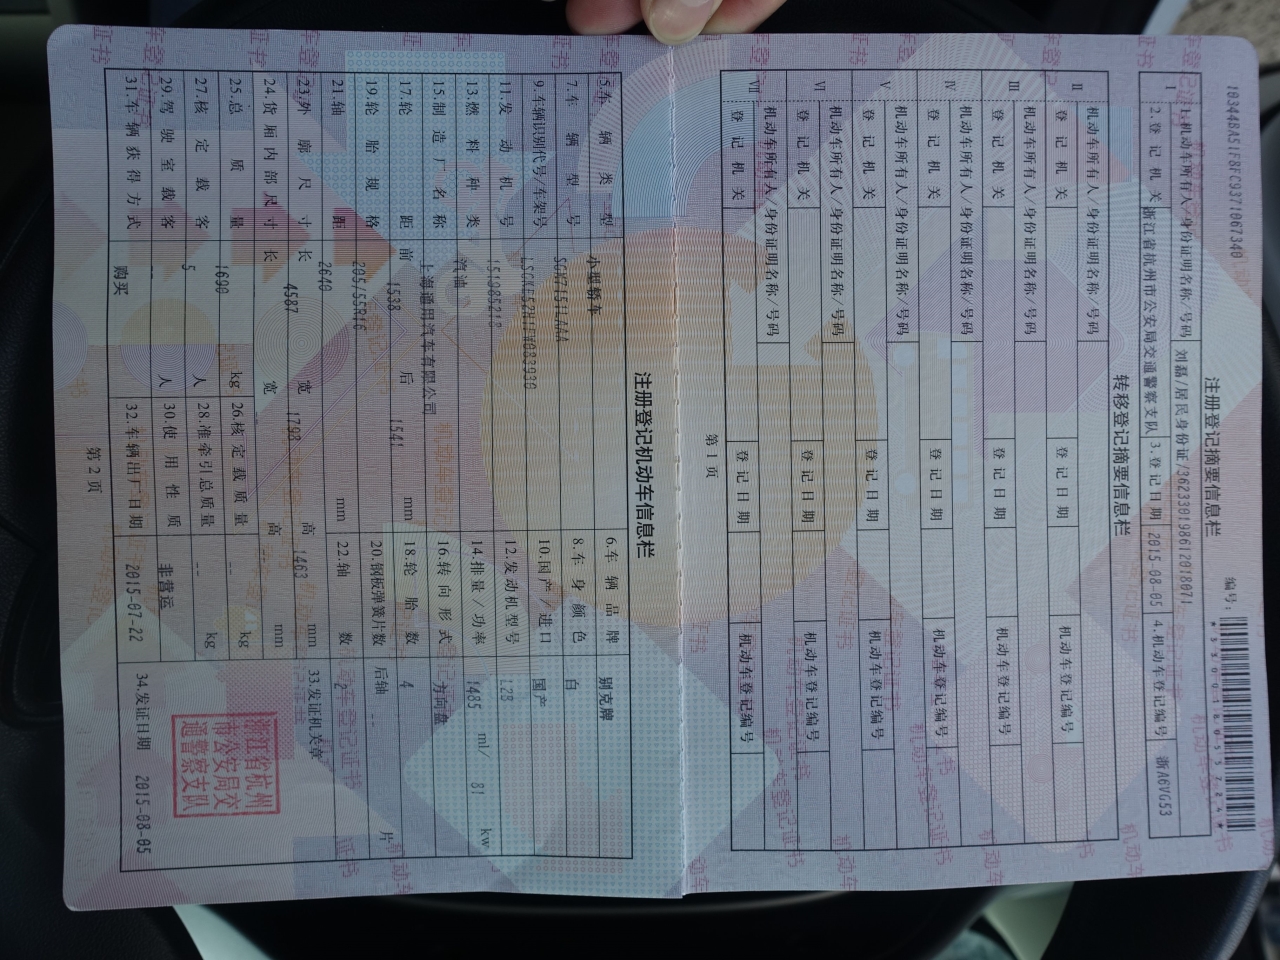 10344BA51F8FC9371067340
编号:
*330018055224*
注册登记摘要信息栏
I 1.机动车所有人/身份证明名称/号码 刘磊/居民身份证/362330198612018071
2.登记机关 浙江省杭州市公安局交通警察支队 3.登记日期 2015-08-05 4.机动车登记编号 浙A6VG53
转移登记摘要信息栏
II 机动车所有人/身份证明名称/号码
登记机关 登记日期 机动车登记编号
III 机动车所有人/身份证明名称/号码
登记机关 登记日期 机动车登记编号
IV 机动车所有人/身份证明名称/号码
登记机关 登记日期 机动车登记编号
V 机动车所有人/身份证明名称/号码
登记机关 登记日期 机动车登记编号
VI 机动车所有人/身份证明名称/号码
登记机关 登记日期 机动车登记编号
VII 机动车所有人/身份证明名称/号码
登记机关 登记日期 机动车登记编号
第1页
注册登记机动车信息栏
5.车辆类型 小型轿车 6.车辆品牌 别克牌
7.车辆型号 SGM7151LAAA 8.车身颜色 白
9.车辆识别代号/车架号 10.国产/进口 国产
11.发动机号 151985218 12.发动机型号 L2B
13.燃料种类 汽油 14.排量/功率 1485 ml/ 81 kw
15.制造厂名称 上海通用汽车有限公司 16.转向形式 方向盘
17.轮距 前 1538 后 1541 mm 18.轮胎数 4
19.轮胎规格 205/55R16 20.钢板弹簧片数 后轴 片
21.轴距 2640 mm 22.轴数 2
23.外廓尺寸 长 4587 宽 1798 高 1463 mm 33.发证机关章
24.货厢内部尺寸 长 宽 高 -- mm
25.总质量 1690 kg 26.核定载质量 -- kg
27.核定载客 5 人 28.准牵引总质量 -- kg
29.驾驶室载客 -- 人 30.使用性质 非营运
31.车辆获得方式 购买 32.车辆出厂日期 2015-07-22 34.发证日期 2015-08-05
浙江省杭州
市公安局交
通警察支队
第2页